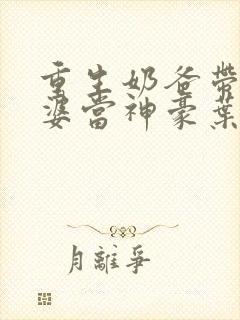 重生奶爸帶
婆當神豪葉
月離爭